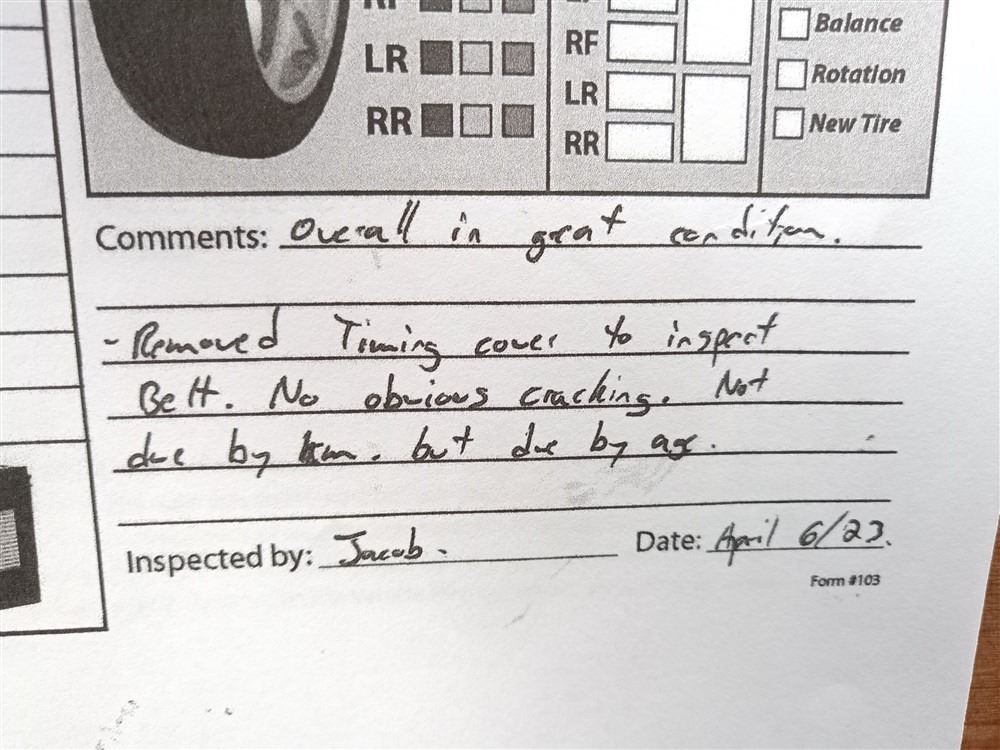 LR
RR
RF
LR
RR
Balance
Rotation
New Tire
Comments: Overall in great condition.
- Removed Timing cover to inspect
Belt. No obvious cracking. Not
due by km. but due by age.
Inspected by: Jacob.
Date: April 6/23.
Form #103